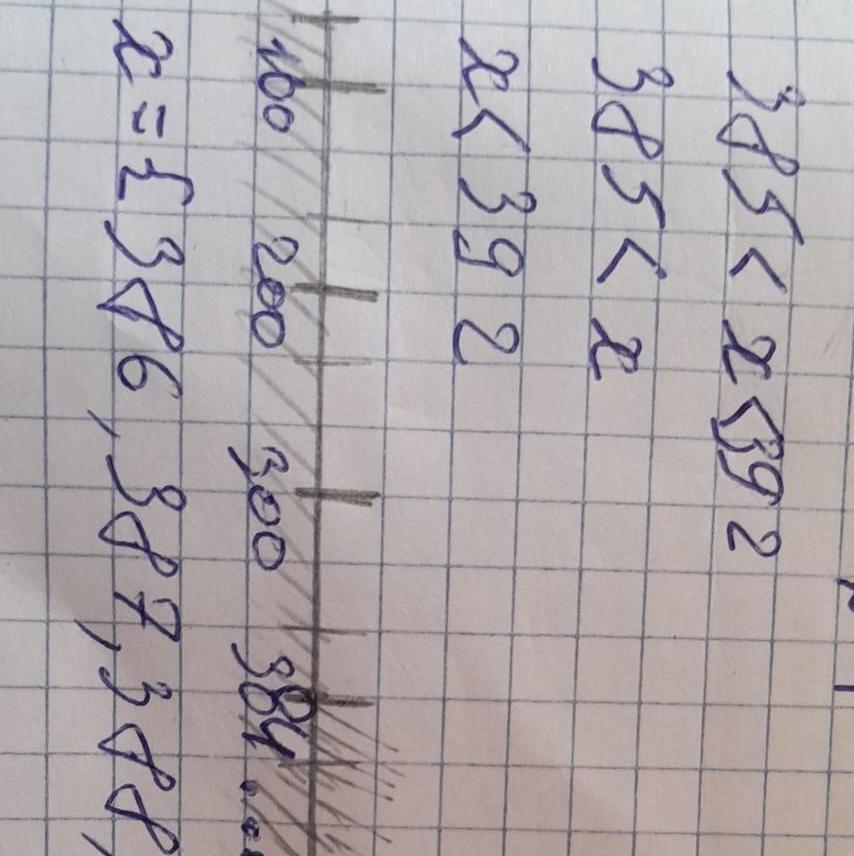 385 < x < 392
385 < x
x < 392
100 200 300 384...
x = { 386, 387, 388,